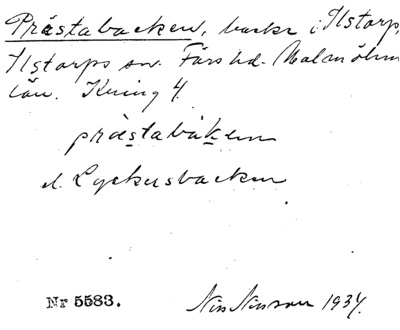 Prästabacken, backe i Ilstorp,
Ilstorps sn. Färs hd. Malmöhus
län. Kning 4.
prästabakęn
el. Lyckusbacken
Nr 5583. Nils Nilsson 1934.